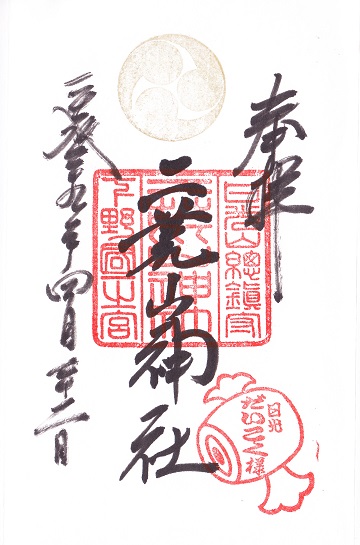 奉拝
日光山總鎮守
二荒山神社
二荒山神社
下野國一之宮
四月廿二日
日光
だいこく様